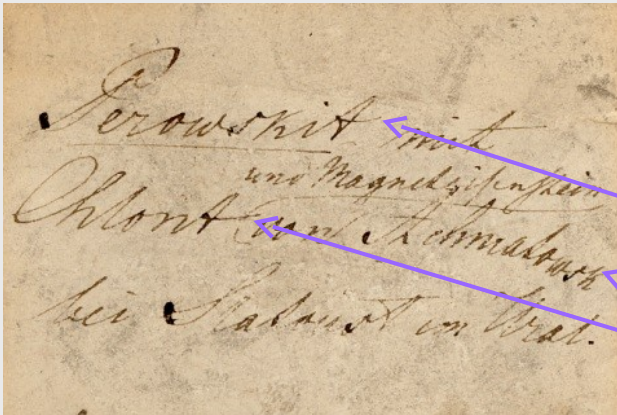 Perowskit mit
und Magneteisenstein
Chlorit vom Achmatowsk
bei Slatoust im Ural.